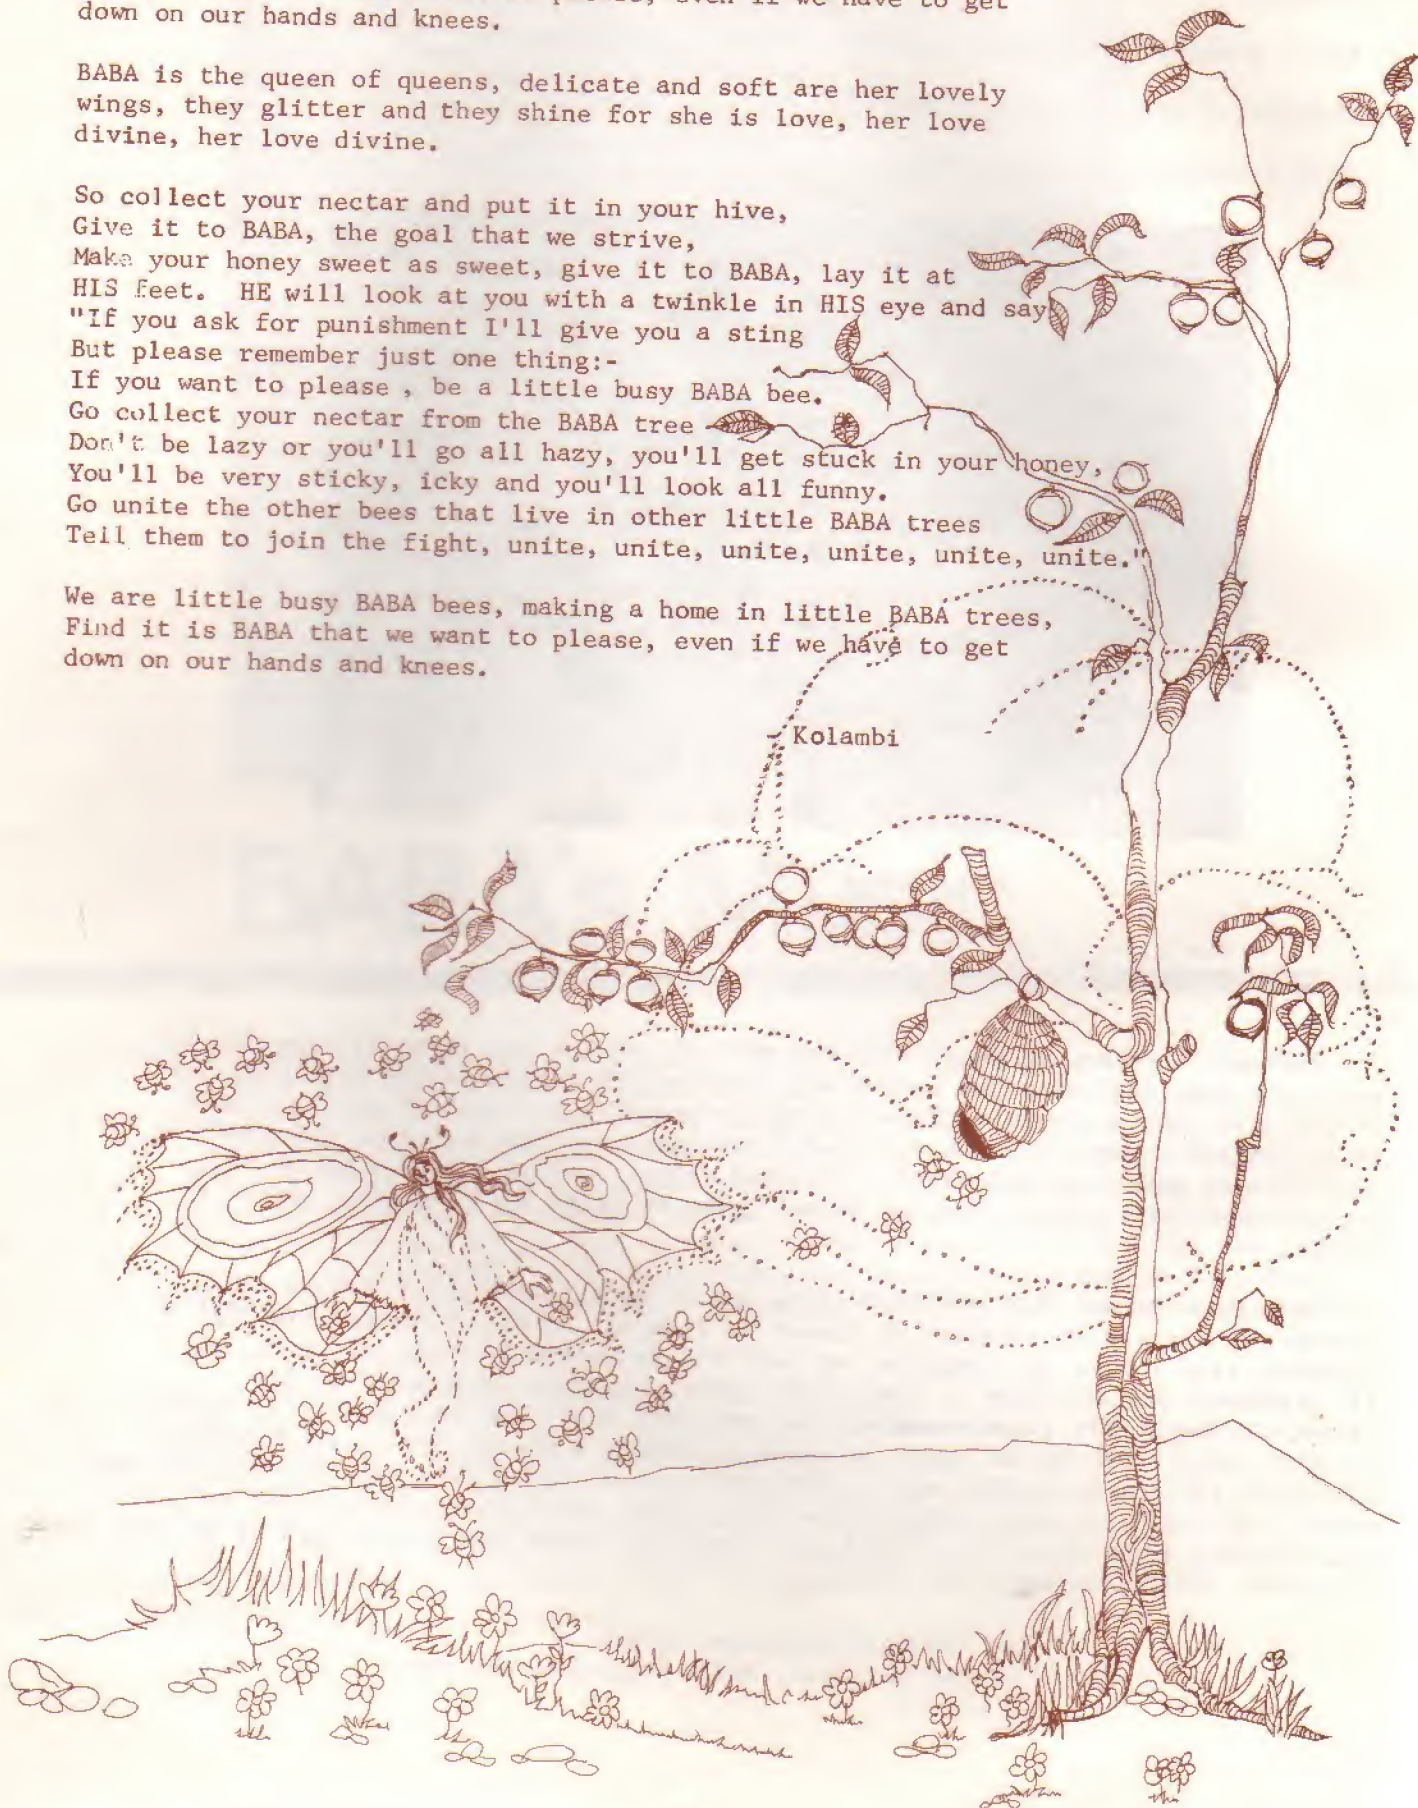 please, even if we have to get
down on our hands and knees.
BABA is the queen of queens, delicate and soft are her lovely
wings, they glitter and they shine for she is love, her love
divine, her love divine.
So collect your nectar and put it in your hive,
Give it to BABA, the goal that we strive,
Make your honey sweet as sweet, give it to BABA, lay it at
HIS feet. HE will look at you with a twinkle in HIS eye and say
"If you ask for punishment I'll give you a sting
But please remember just one thing:-
If you want to please , be a little busy BABA bee.
Go collect your nectar from the BABA tree
Don't be lazy or you'll go all hazy, you'll get stuck in your honey,
You'll be very sticky, icky and you'll look all funny.
Go unite the other bees that live in other little BABA trees
Tell them to join the fight, unite, unite, unite, unite, unite, unite."
We are little busy BABA bees, making a home in little BABA trees,
Find it is BABA that we want to please, even if we have to get
down on our hands and knees.
- Kolambi